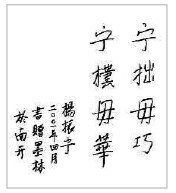 宁拙毋巧
宁朴毋華
楊振宁
二〇〇一年四月
書贈墨林
於南开